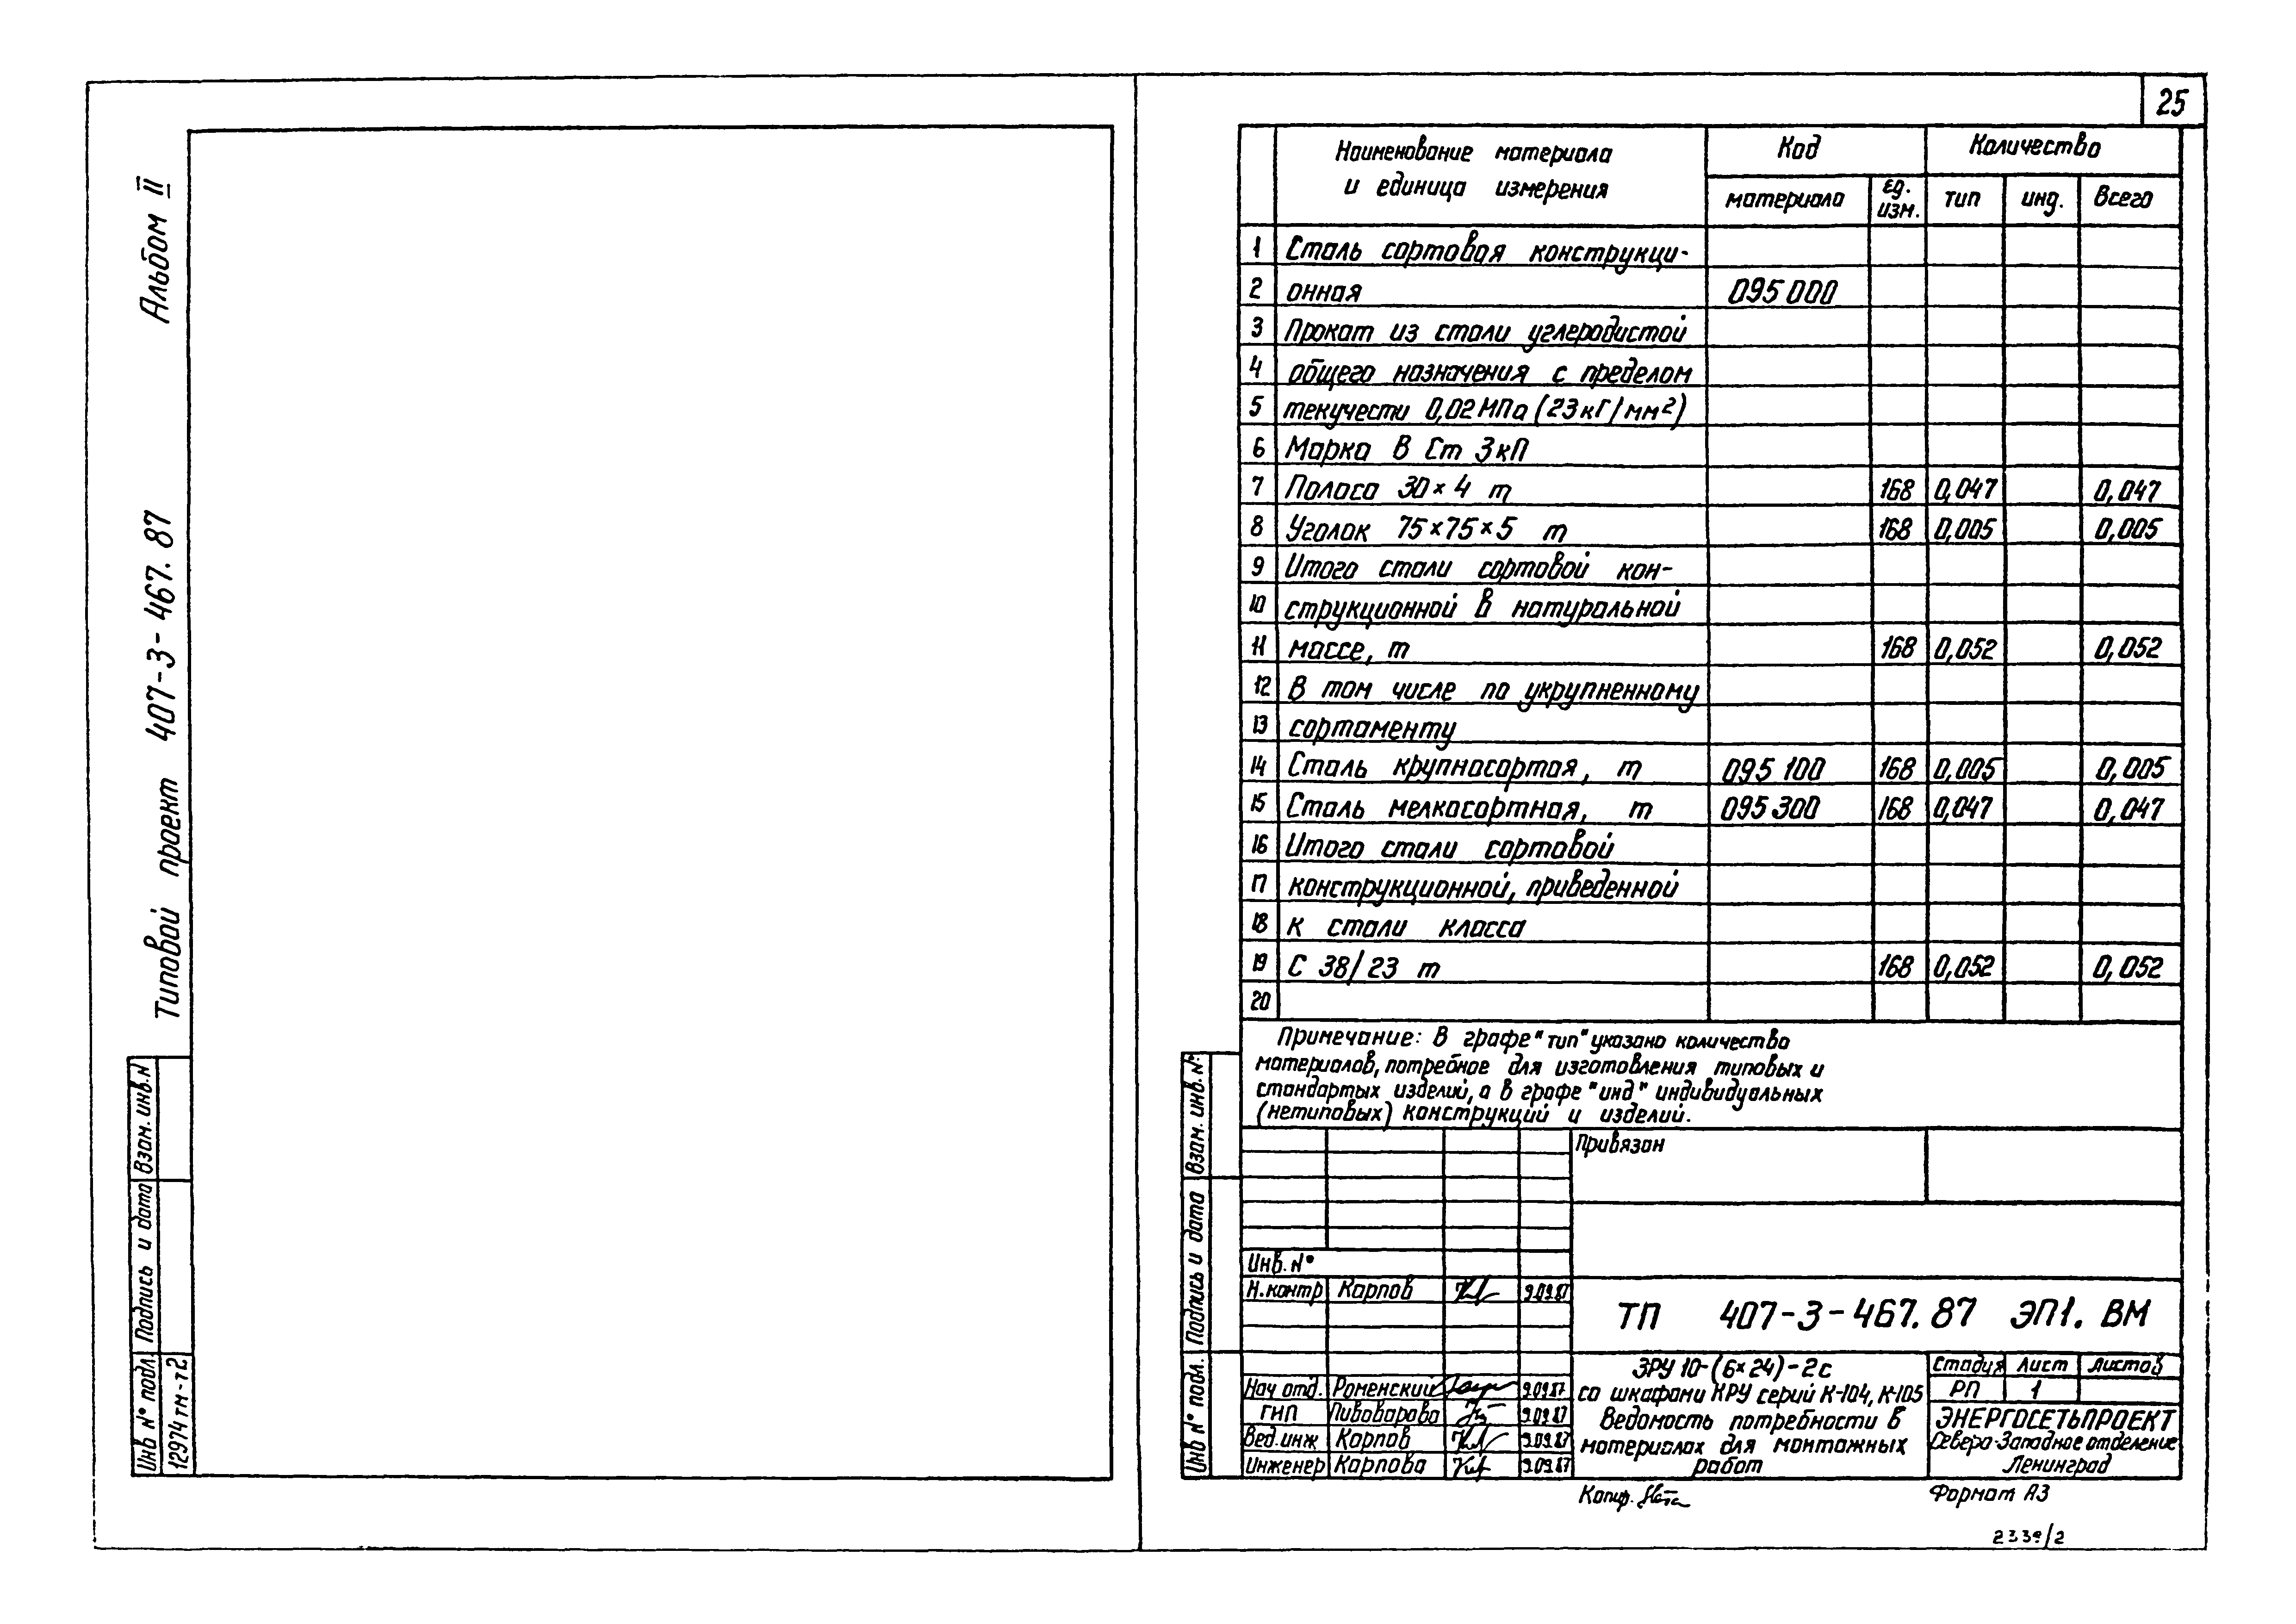 25
Альбом II
Типовой проект 407-3-467.87
Взам. инв. N
Подпись и дата
Инв N° подл.
12974тм-т2
Наименование материала и единица измерения
Код
Количество
материала
ед. изм.
тип
инд.
Всего
1 Сталь сортовая конструкци-
2 онная 095000
3 Прокат из стали углеродистой
4 общего назначения с пределом
5 текучести 0,02 МПа (23 кГ/мм²)
6 Марка В Ст 3кп
7 Полоса 30×4 т 168 0,047 0,047
8 Уголок 75×75×5 т 168 0,005 0,005
9 Итого стали сортовой кон-
10 струкционной в натуральной
11 массе, т 168 0,052 0,052
12 В том числе по укрупненному
13 сортаменту
14 Сталь крупносортая, т 095 100 168 0,005 0,005
15 Сталь мелкосортная, т 095 300 168 0,047 0,047
16 Итого стали сортовой
17 конструкционной, приведенной
18 к стали класса
19 С 38/23 т 168 0,052 0,052
20
Примечание: В графе "тип" указано количество
материалов, потребное для изготовления типовых и
стандартых изделий, а в графе "инд" индивидуальных
(нетиповых) конструкций и изделий.
Взам. инв. N°
Подпись и дата
Инв N° подл.
Привязан
Инв. N°
Н.контр Карпов 9.09.87
ТП 407-3-467.87 ЭП1. ВМ
Нач отд. Роменский 9.09.87
ГИП Пивоварова 9.09.87
Вед.инж Карпов 9.09.87
Инженер Карпова 9.09.87
ЗРУ 10-(6×24)-2с
со шкафами КРУ серий К-104, К-105
Ведомость потребности в
материалах для монтажных
работ
Стадия Лист Листов
РП 1
ЭНЕРГОСЕТЬПРОЕКТ
Северо-Западное отделение
Ленинград
Копир.
Формат А3